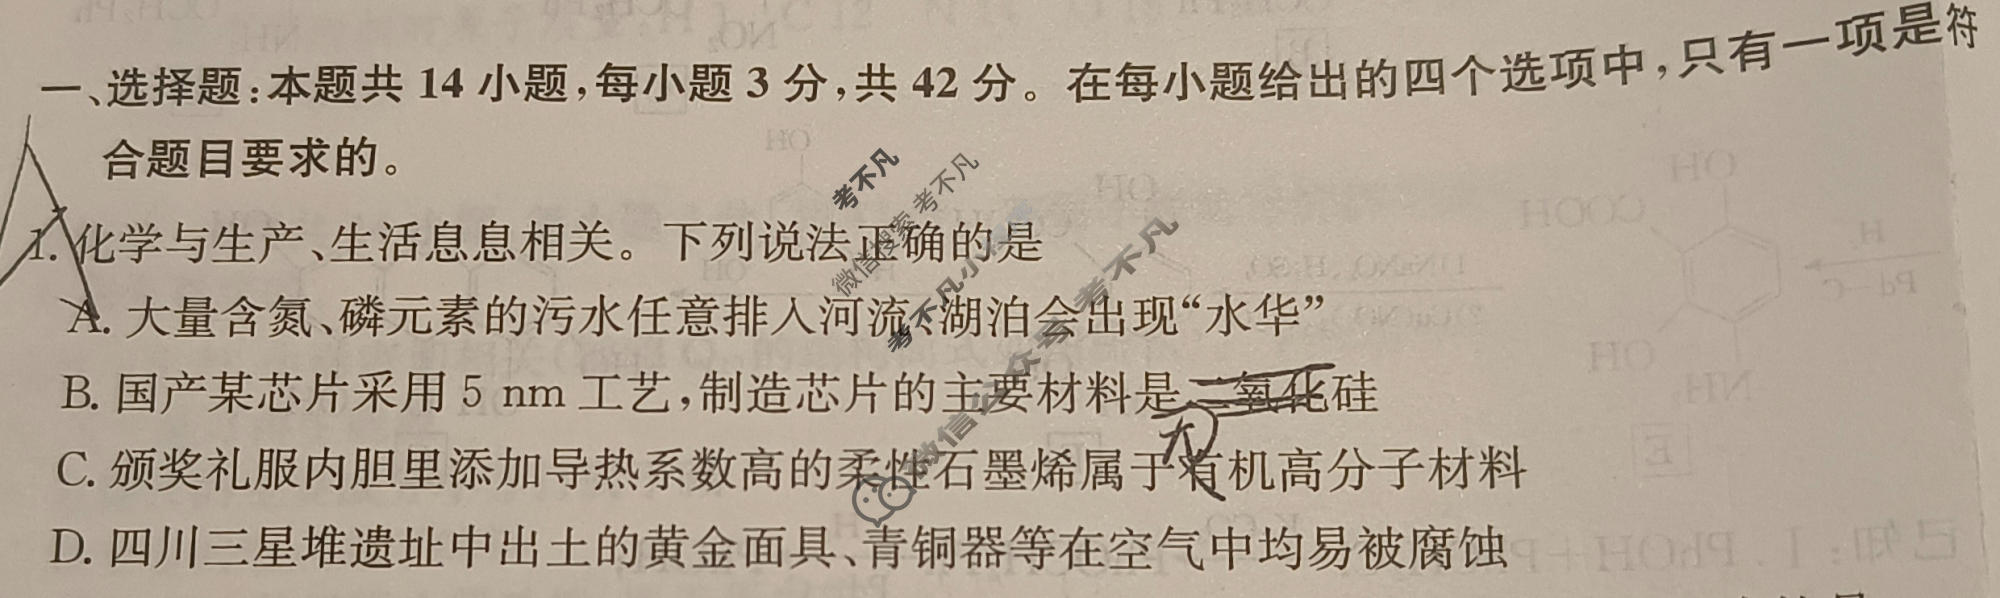 一、选择题：本题共 14 小题，每小题 3 分，共 42 分。在每小题给出的四个选项中，只有一项是符
合题目要求的。
1. 化学与生产、生活息息相关。下列说法正确的是
A. 大量含氮、磷元素的污水任意排入河流、湖泊会出现“水华”
B. 国产某芯片采用 5 nm 工艺，制造芯片的主要材料是二氧化硅
C. 颁奖礼服内胆里添加导热系数高的柔性石墨烯属于有机高分子材料
D. 四川三星堆遗址中出土的黄金面具、青铜器等在空气中均易被腐蚀
考不凡
微信搜索 考不凡
考不凡小
微信公众号 考不凡